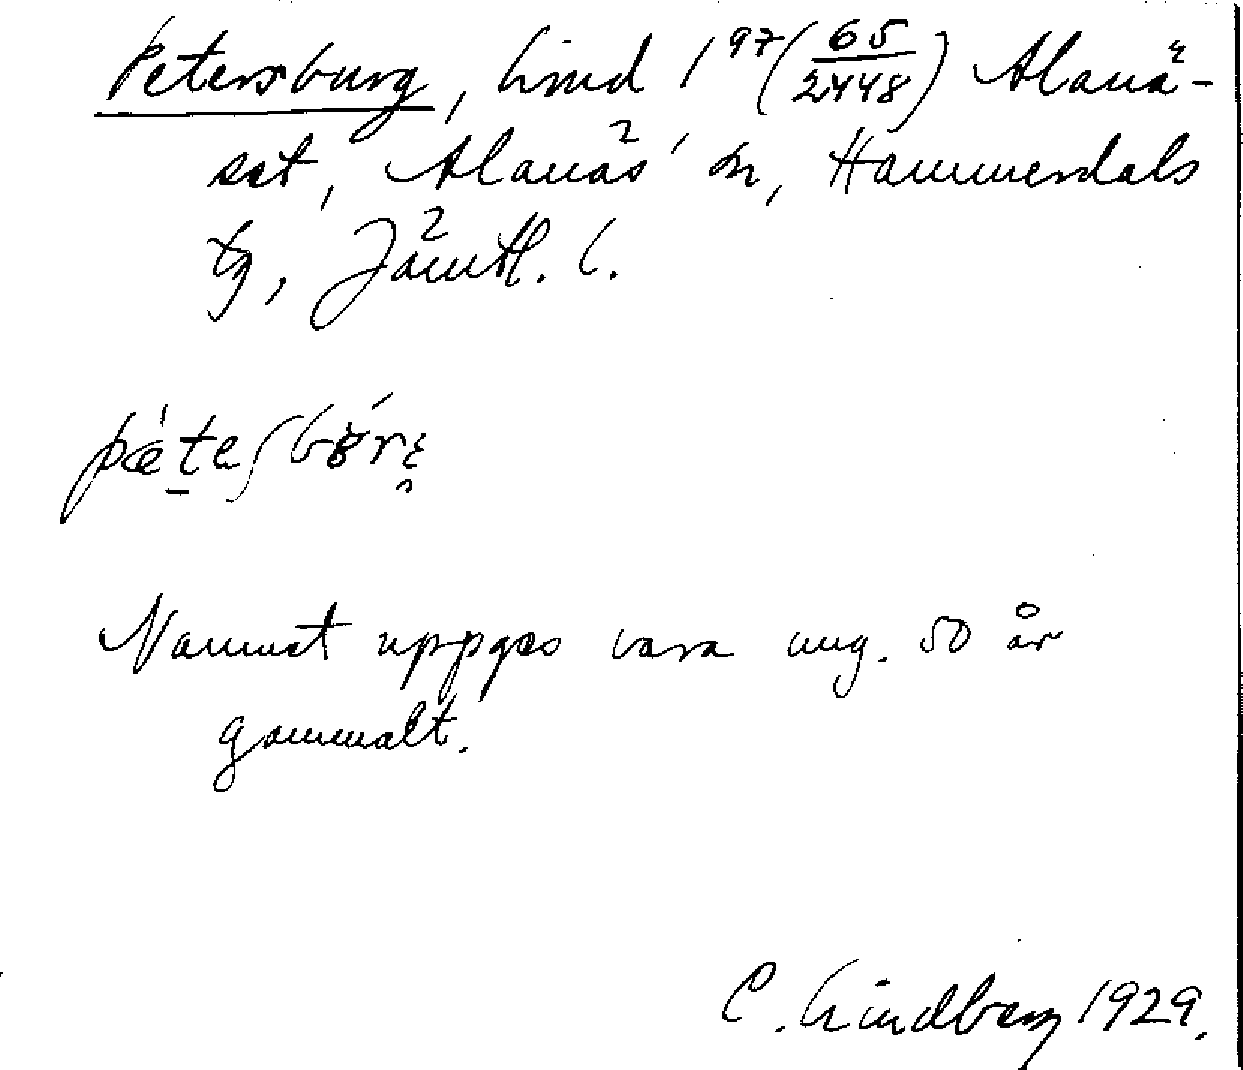 Petersburg, hmd 1⁹⁷(65/2448) Alanä-
set, Alanäs' sn, Hammerdals
tg, Jämtl. l.
Namnet uppges vara ung. 50 år
gammalt.
C. Lindberg 1929.